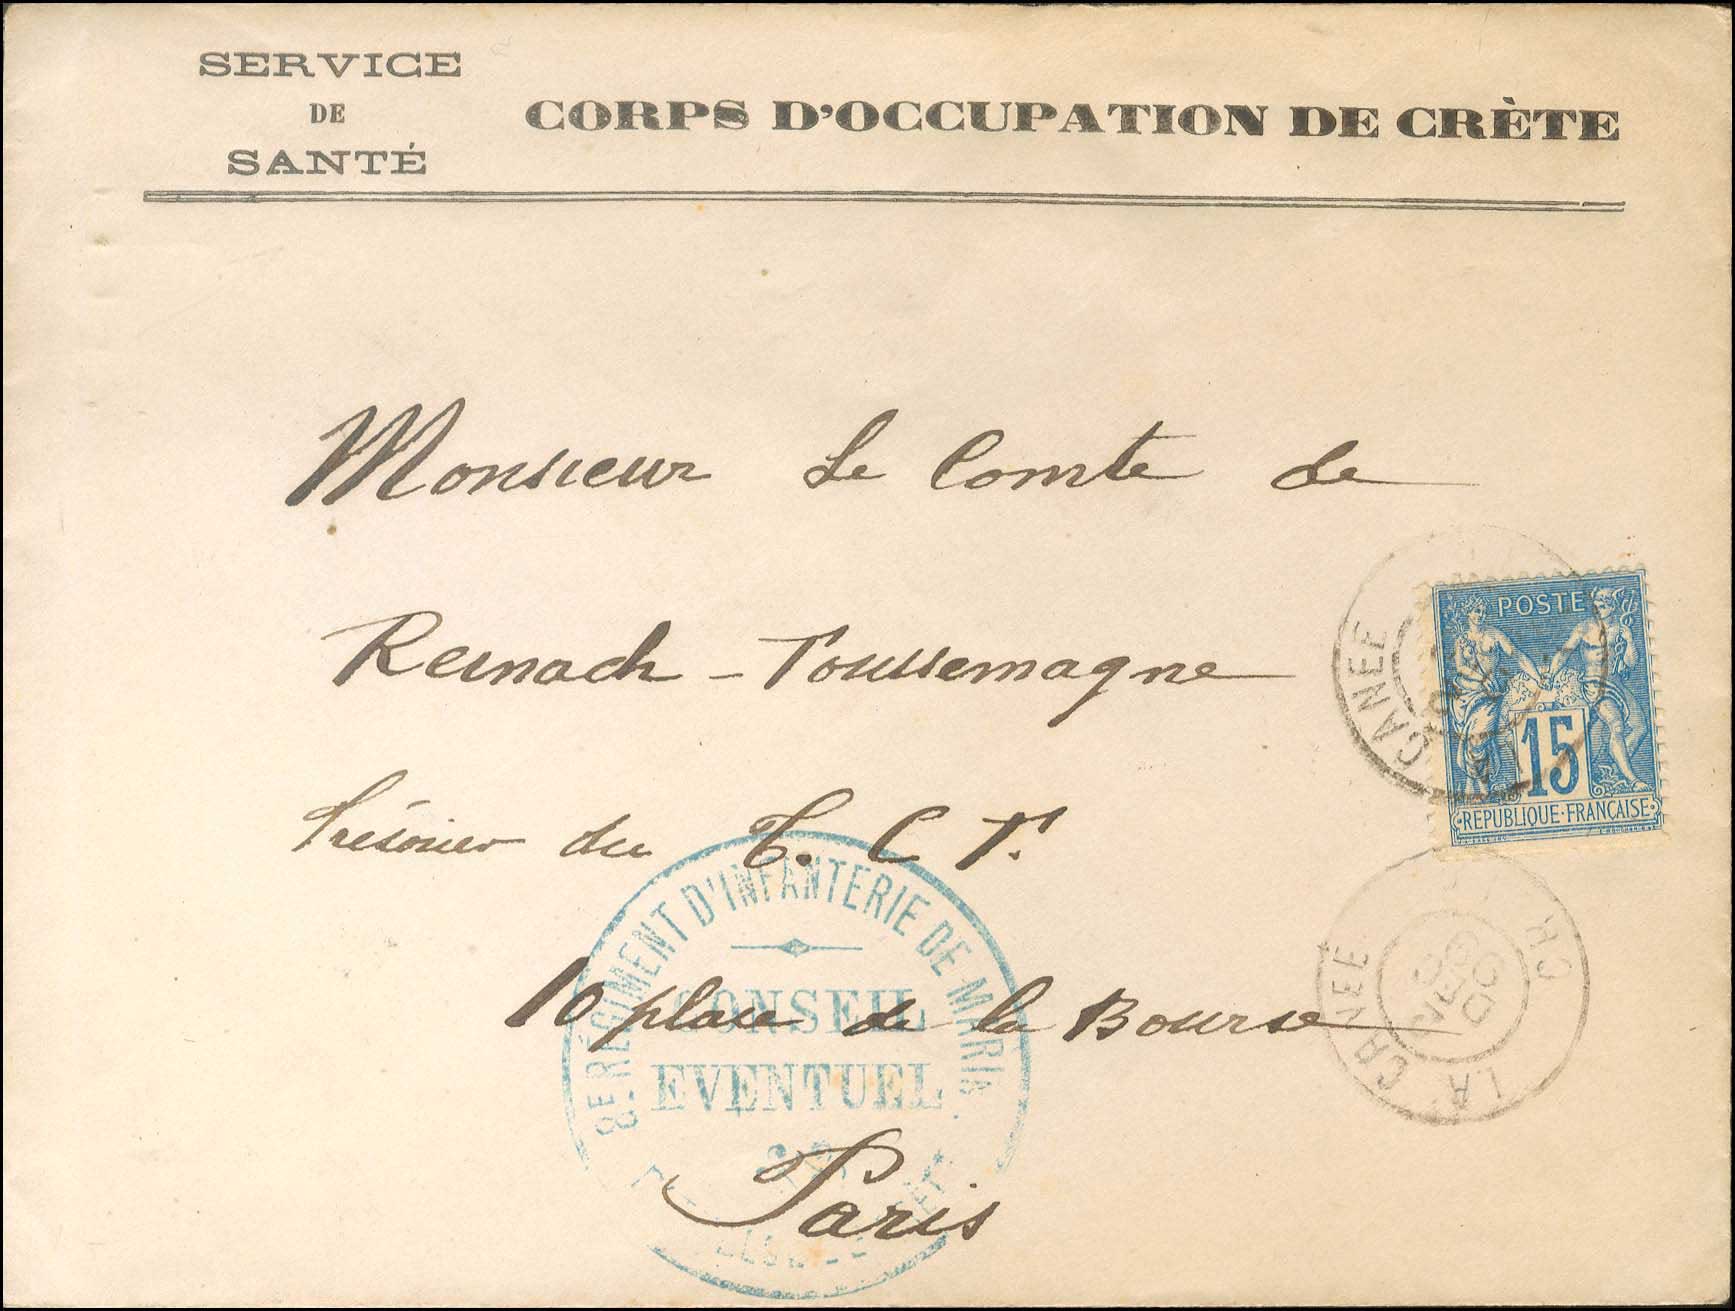 SERVICE
DE
SANTÉ
CORPS D'OCCUPATION DE CRÈTE
Monsieur Le Comte de
Reinach - Foussemagne
Trésorier du T. C F.
10 place de la Bourse
Paris
POSTE
15
REPUBLIQUE FRANÇAISE
CANEE
LA CANEE
8E RÉGIMENT D'INFANTERIE DE MARINE
CONSEIL
EVENTUEL